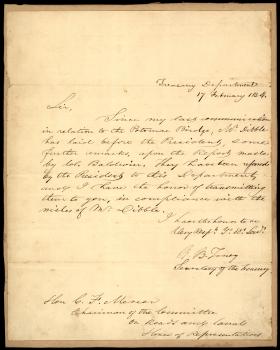 Treasury Department
17 February 1834.
Sir,
Since my last communication
in relation to the Potomac Bridge, Mr Dibble
has laid before the President, some
further remarks, upon the Report made
by Col. Baldwin. They have been referred
by the President to this Department,
and I have the honor of transmitting
them to you, in compliance with the
wishes of Mr Dibble.
I have the honor to be
Very Resp.y Yr. Ob. Servt.
R. B. Taney
Secretary of the Treasury
Hon C. F. Mercer
Chairman of the Committee
on Roads and Canals
House of Representatives